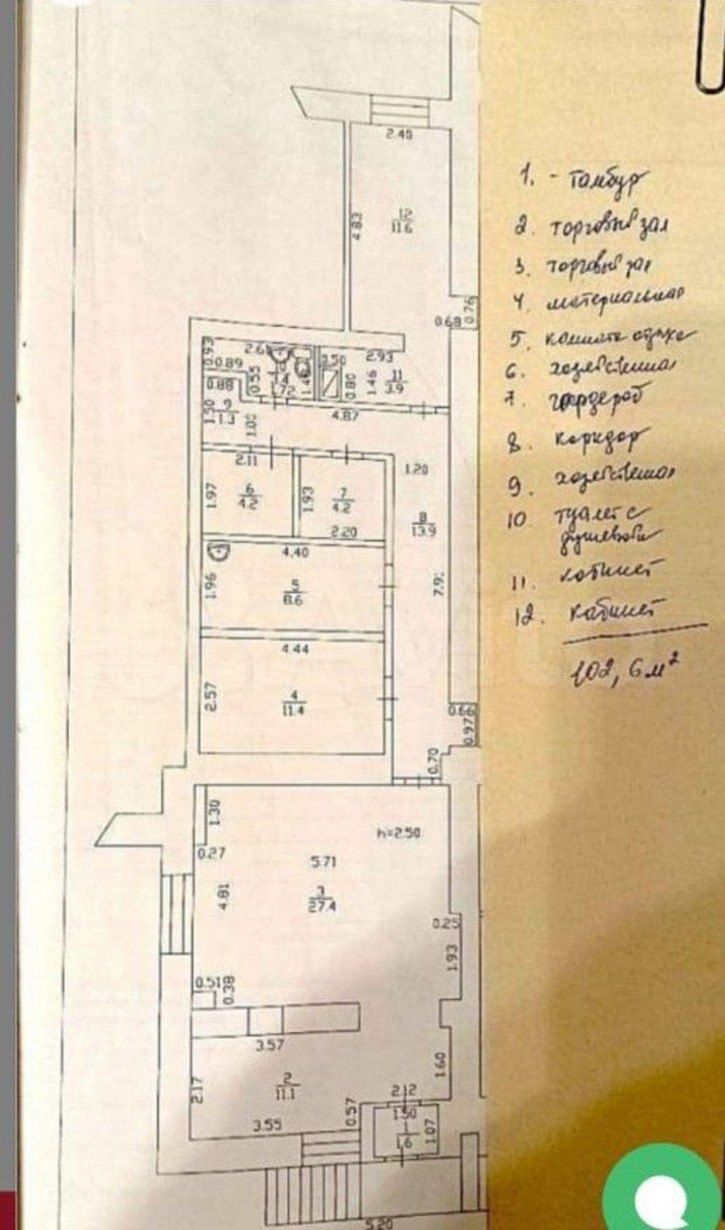 2.40
12
11.6
4.83
0.76
0.68
0.93
2.6
0.50
2.93
0.89
0.88
0.55
1.46
0.80
1.46
11
3.9
9
1.3
1.50
1.00
4.87
2.11
1.20
1.97
6
4.2
1.93
7
4.2
8
13.9
2.20
4.40
1.96
5
8.6
7.91
4.44
2.57
4
11.4
0.66
0.97
0.70
1.30
h=2.50
0.27
5.71
4.81
3
27.4
0.25
1.93
0.51
0.38
3.57
1.60
2.17
2
11.1
2.12
1.50
0.57
1
1.6
1.07
3.55
5.20
1. - Тамбур
2. торговый зал
3. торговый зал
4. материальная
5. комната отдыха
6. хозяйственная
7. гардероб
8. коридор
9. хозяйственная
10 туалет с
душевой
11. кабинет
12. кабинет
102,6 м²